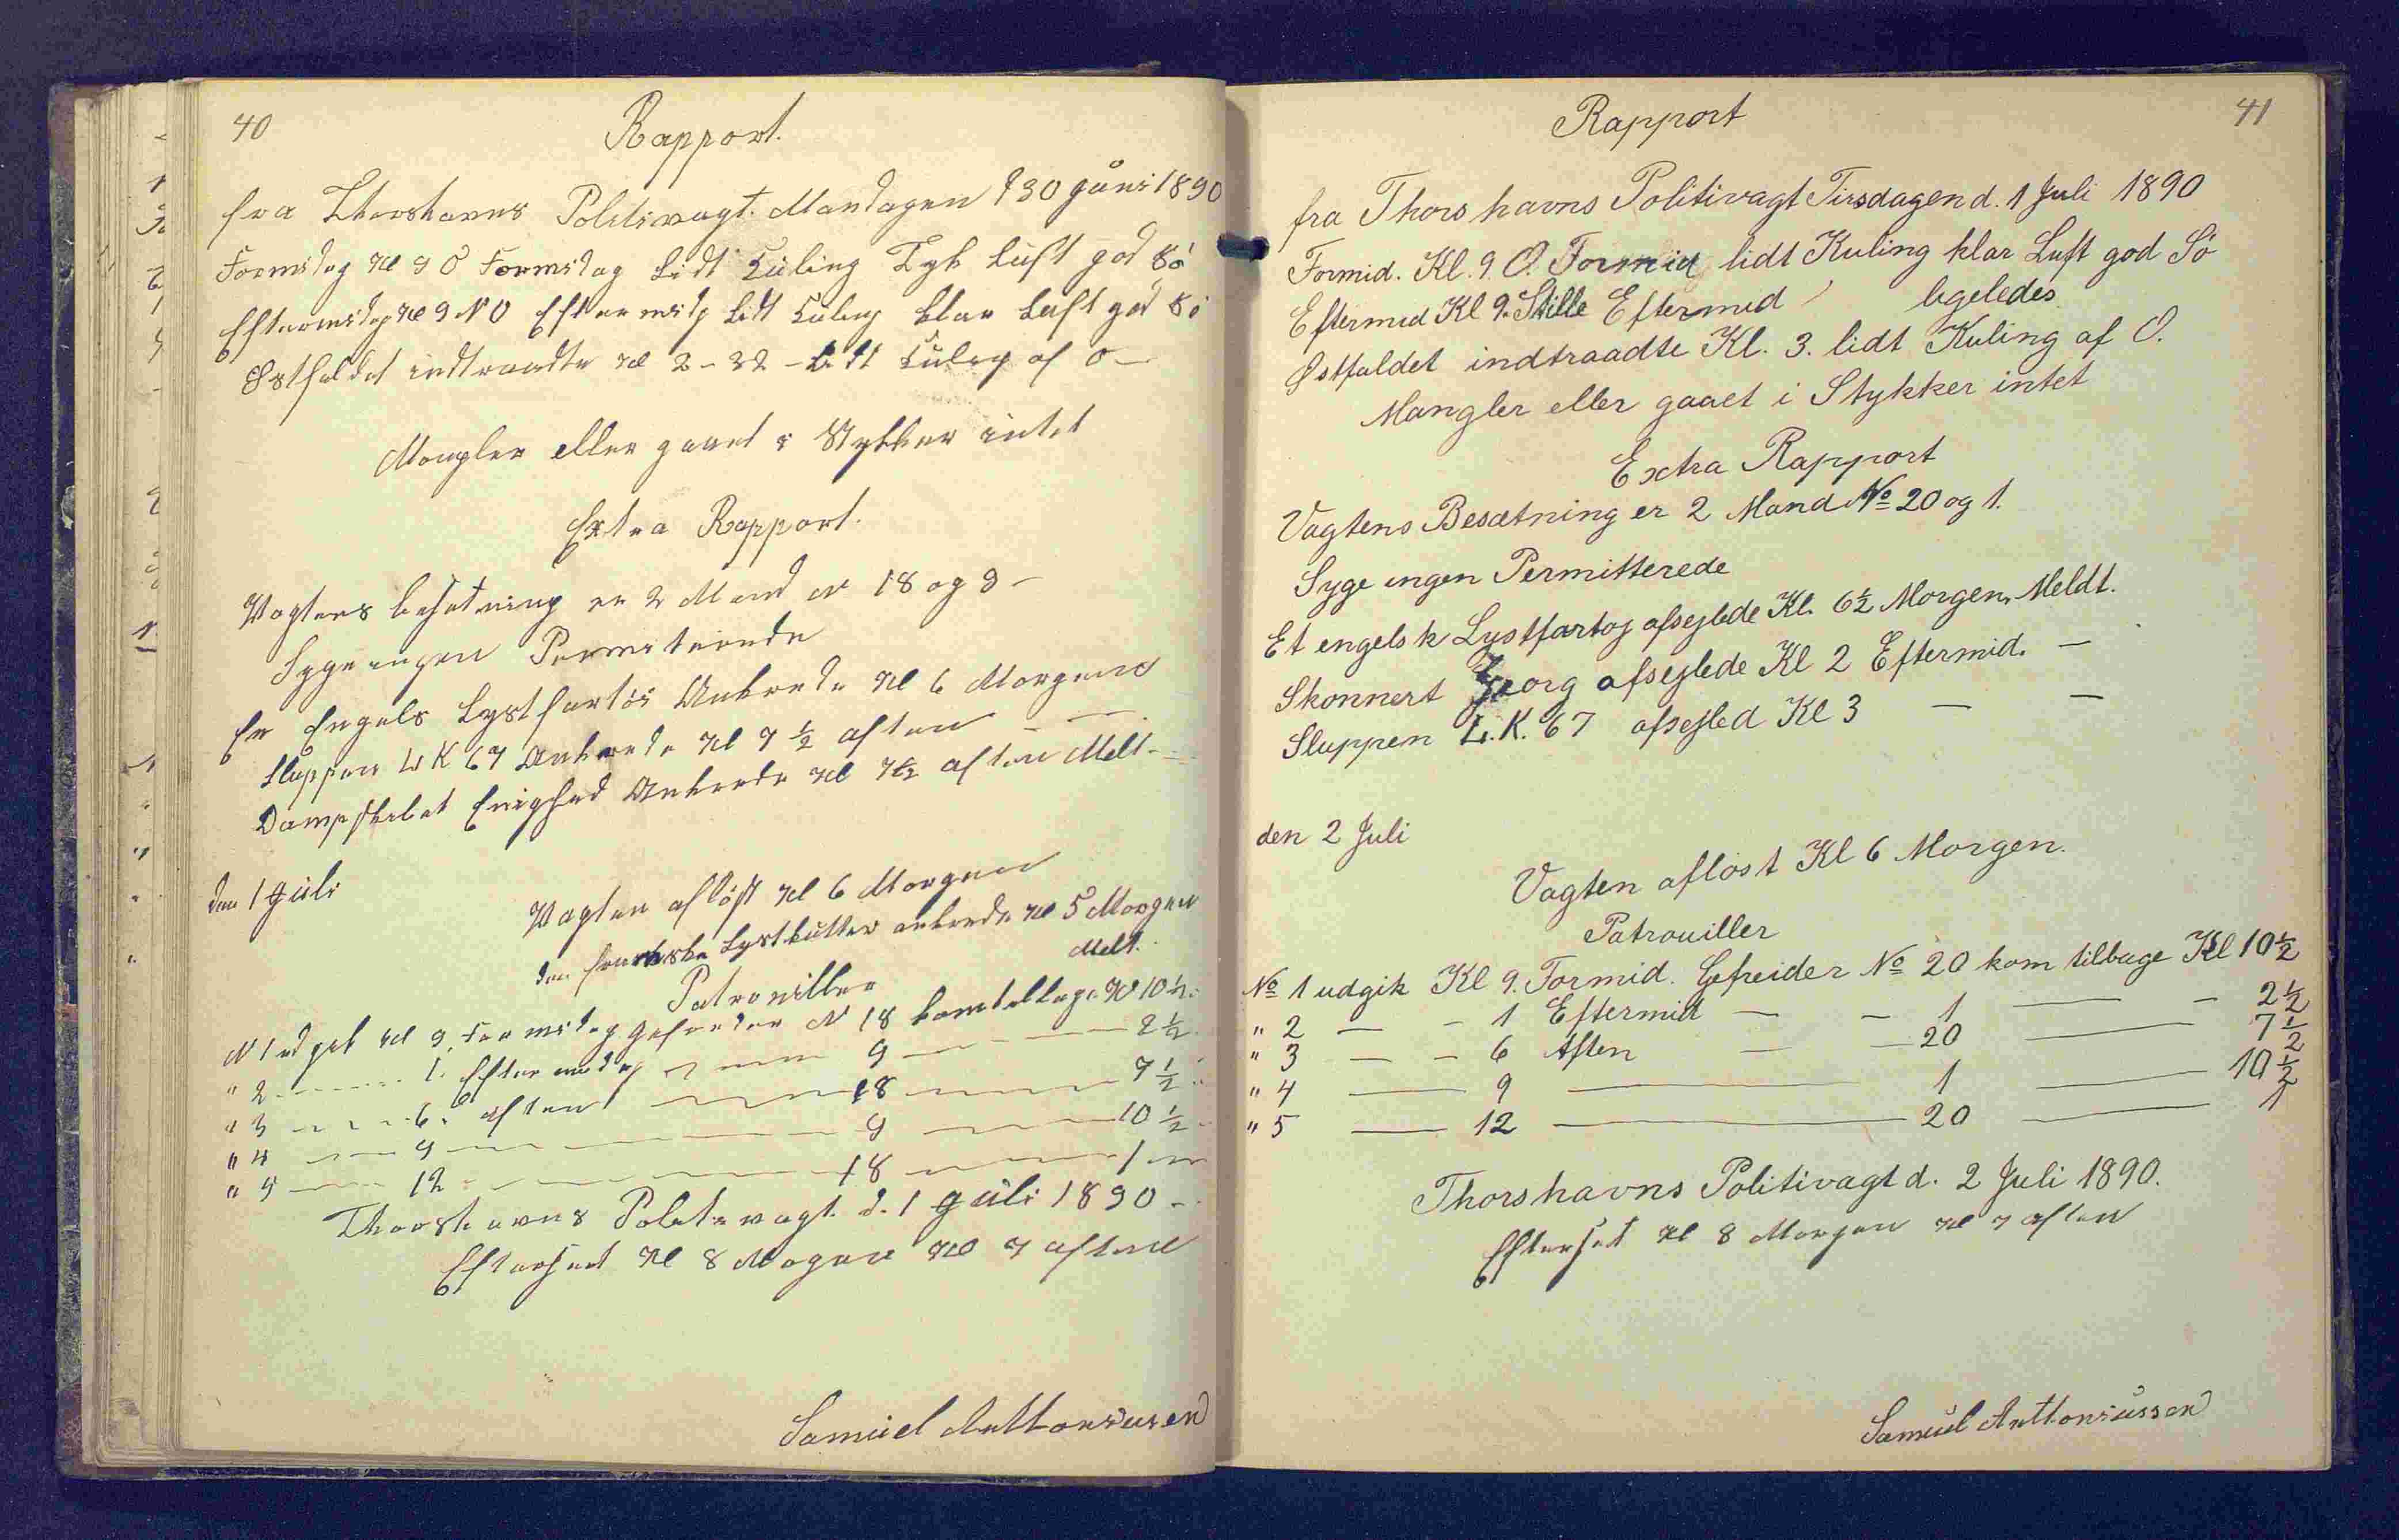 40
Rapport.
fra Thorshavns Politivagt. Mandagen d 30 Juni 1890
Formidag Kl 9 O Formidag Lidt Kuling Tyk Luft god Sö
Eftermidag Kl 9 NO Eftermidg Lidt Kuling klar Luft god Sö
Østfaldet indtraadte Kl 2-32 - Lidt Kuling af O -
Mangler eller gaaet i Stykker intet
Extra Rapport.
Vagtens besetning er 2 Mand N 18 og 9 -
Syge ingen Permiterede
En Engels Lystfartöi Ankrede Kl 6 Morgen
Sluppen L K 67 Ankrede Kl 7 ½ aften — —
Dampskibet Enighed Ankrede Kl 7½ aften Melt -
den 1 Juli
Vagten aflöst Kl 6 Morgen
den franske Lystkutter ankrede Kl 5 Morgen
Melt.
Patrouiller
N 1 udgik Kl 9. Formidag Gefreider N 18 kom tilbage Kl 10 ½
" 2 — 1. Eftermidag — 9 — 2 ½
" 3 — 6. aften — 18 — 7 ½
" 4 — 9 — 9 — 10 ½
" 5 — 12 — 18 — 1 —
Thorshavns Politivagt. d. 1 Juli 1890 -
Efterset Kl 8 Mogen Kl 7 aften
Samuel Anthoniusen
41
Rapport
fra Thorshavns Politivagt Tirsdagen d. 1 Juli 1890
Formid. Kl. 9. O. Formid lidt Kuling klar Luft god Sö
Eftermid Kl 9. Stille Eftermid ligeledes
Østfaldet indtraadte Kl. 3. lidt Kuling af O.
Mangler eller gaaet i Stykker intet
Extra Rapport
Vagtens Besætning er 2 Mand No 20 og 1.
Syge ingen Permitterede
Et engelsk Lystfartoj afsejlede Kl. 6½ Morgen. Meldt.
Skonnert Georg afsejlede Kl 2 Eftermid. —
Sluppen L.K. 67 afsejled Kl 3 — —
den 2 Juli
Vagten aflöst Kl 6 Morgen.
Patrouiller
No 1 udgik Kl 9. Formid. Gefreider No 20 kom tilbage Kl 10 ½
" 2 — - 1 Eftermid — - 1 — - 2 ½
" 3 — - 6 Aften — - 20 — 7 ½
" 4 — 9 — 1 — 10 ½
" 5 — 12 — 20 — 1
Thorshavns Politivagt d. 2 Juli 1890.
Efterset Kl 8 Morgen Kl 7 aften
Samuel Anthoniussen